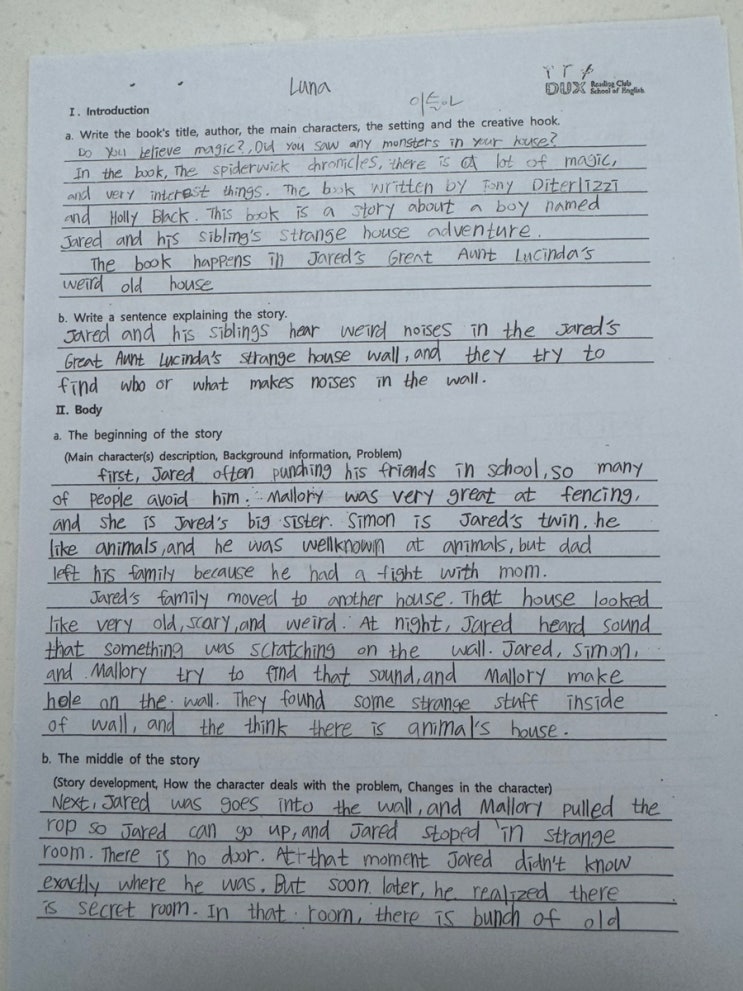 Luna
이든아
DUX Reading Club
School of English
I. Introduction
a. Write the book's title, author, the main characters, the setting and the creative hook.
Do you believe magic?, Did you saw any monsters in your house?
In the book, The spiderwick chronicles, there is a lot of magic,
and very interest things. The book written by Tony Diterlizzi
and Holly Black. This book is a story about a boy named
Jared and his sibling's strange house adventure.
The book happens in Jared's Great Aunt Lucinda's
weird old house
b. Write a sentence explaining the story.
Jared and his siblings hear weird noises in the Jared's
Great Aunt Lucinda's strange house wall, and they try to
find who or what makes noises in the wall.
II. Body
a. The beginning of the story
(Main character(s) description, Background information, Problem)
first, Jared often punching his friends in school, so many
of people avoid him. Mallory was very great at fencing,
and she is Jared's big sister. Simon is Jared's twin. he
like animals, and he was wellknown at animals, but dad
left his family because he had a fight with mom.
Jared's family moved to another house. That house looked
like very old, scary, and weird. At night, Jared heard sound
that something was scratching on the wall. Jared, Simon,
and Mallory try to find that sound, and Mallory make
hole on the wall. They found some strange stuff inside
of wall, and the think there is animal's house.
b. The middle of the story
(Story development, How the character deals with the problem, Changes in the character)
Next, Jared was goes into the wall, and Mallory pulled the
rop so Jared can go up, and Jared stoped in strange
room. There is no door. At that moment Jared didn't know
exactly where he was. But soon later, he realized there
is secret room. In that room, there is bunch of old